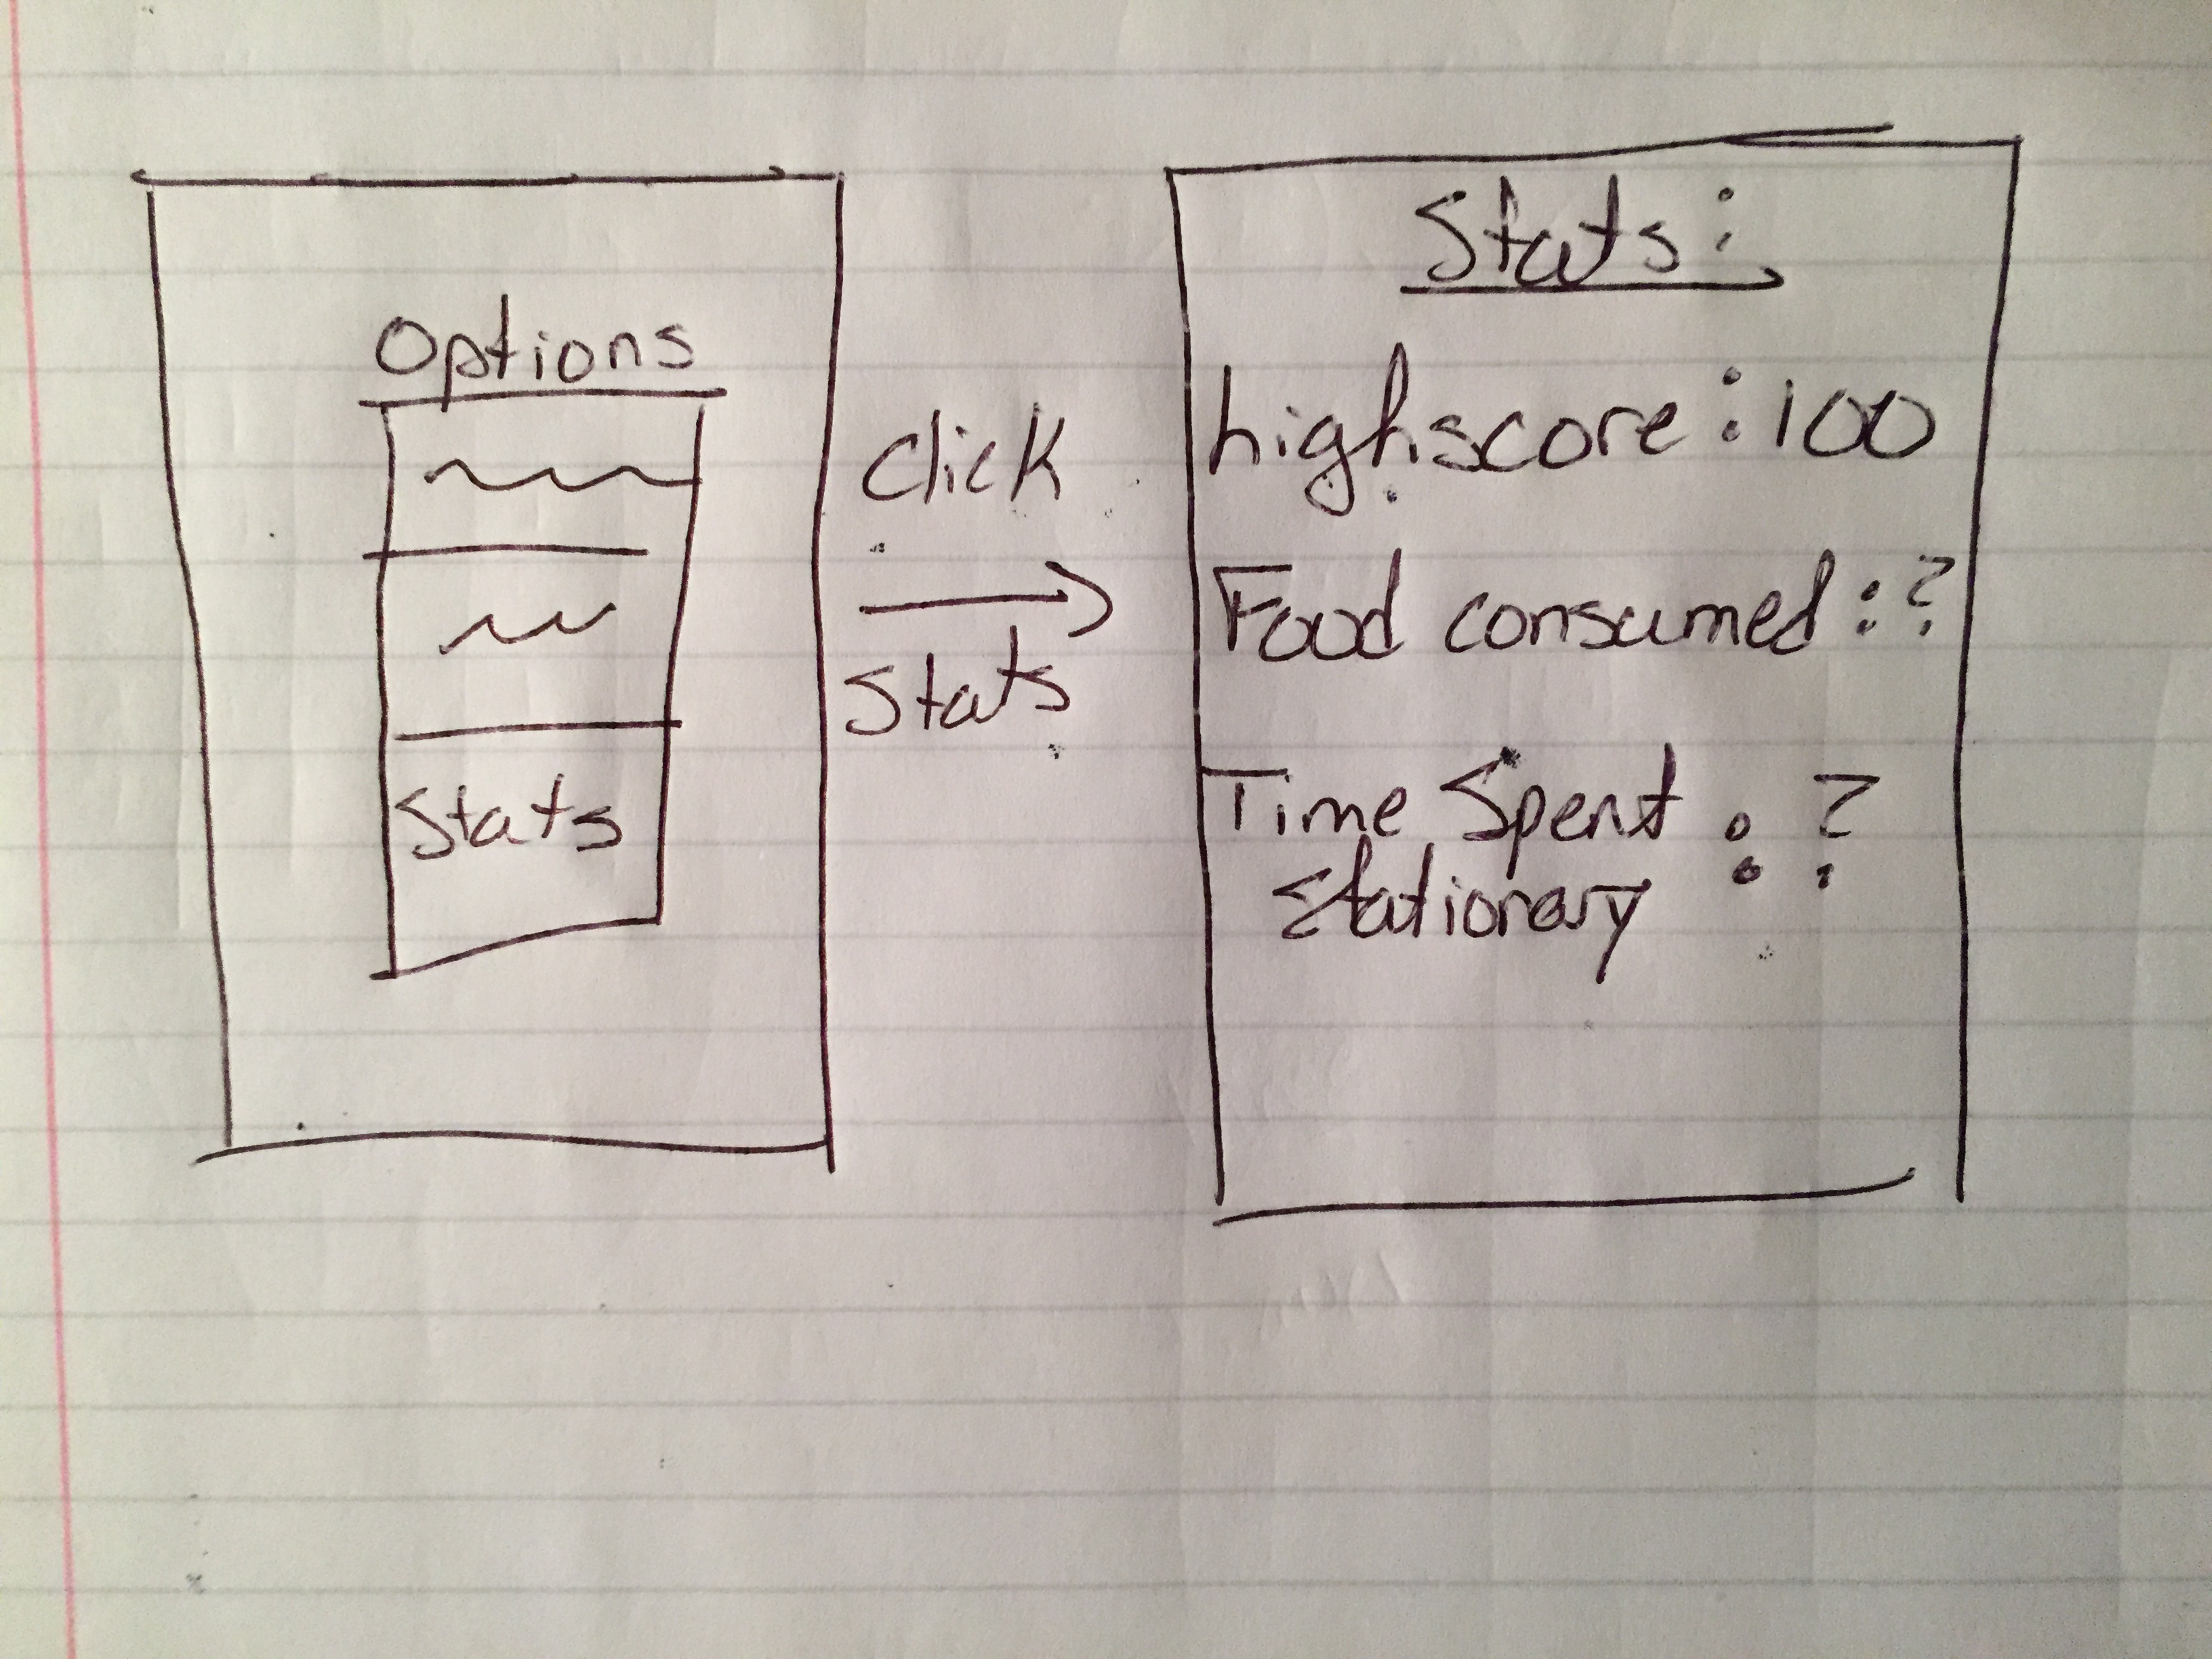 Options
Stats
Click
Stats
Stats:
highscore: 100
Food consumed: 2
Time Spent : 2
Stationary :